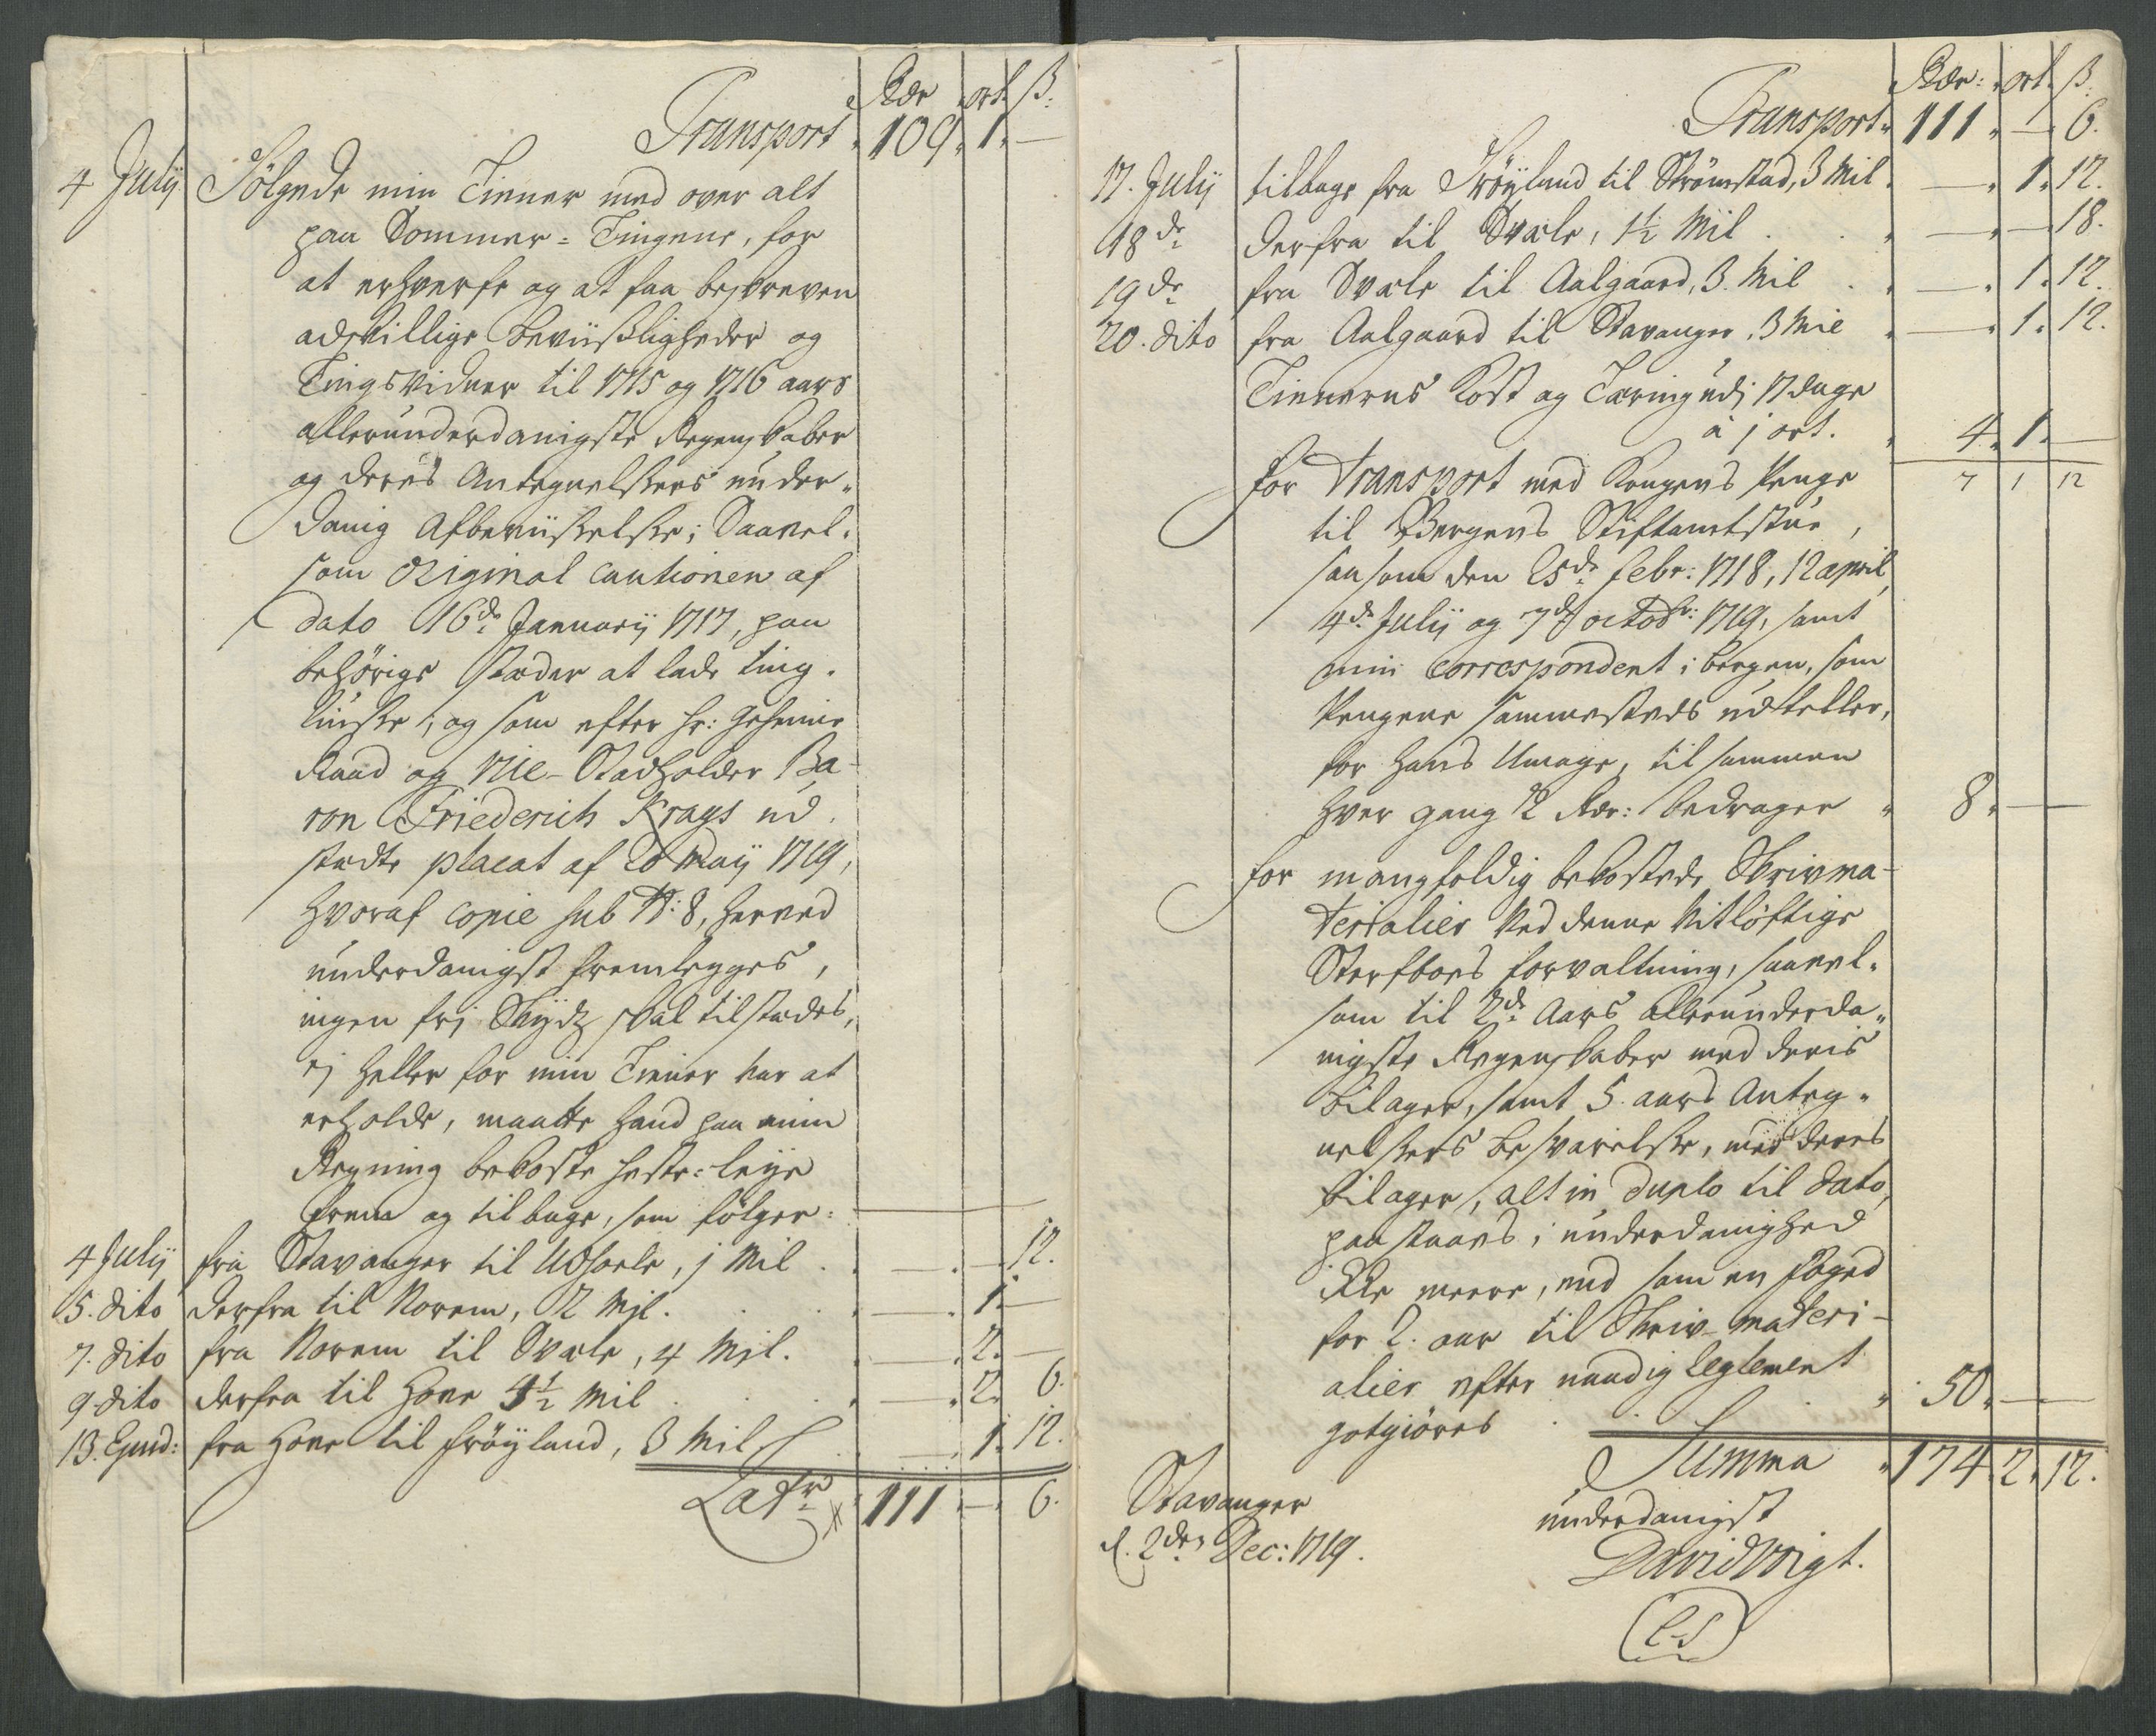 Rdr ort ß:
Transport 109. 1. —
4 Julij Følgede min Tienner med over alt
paa Sommer-Tingene, for
at erhverfe og at faa beskreven
adskillige beviißligheder og
Tingsvidner til 1715 og 1716 aars
allerunderdanigste Regenskaber
og deris Antegnelßers under-
danig Afbeviißelße; Saavel-
som Original Cautionen af
dato 16de Januarij 1717, paa
behørige stæder at lade ting-
liuße; og som efter hr: Geheime
Raad og Vice-Stadholder Ba-
ron Friederich Krags ud-
stædte placat af 20 Maij 1719,
hvoraf Copie sub N: 8, herved
underdanigst fremlegges,
ingen fri Skydz skal tilstædes,
ej heller for min Tiener var at
erholde, maatte hand paa min
Regning bekoste heste-leije
frem og tilbage, som følger:
4 Julij fra Stavanger til Udhoele, j Mil . — — 12.
5. dito derfra til Norem, 2 Mil. — 1. —
7. dito fra Norem til Svale, 4 Mil. — 2. —
9 dito derfra til Hove 4½ Mil — 2. 6.
13. Ejusd: fra Hove til Frøyland, 3 Mil — 1. 12.
Latr 111 — 6.
Rdr: ort. ß.
Transport 111. — 6.
17. Julij tilbage fra Frøyland til Strømstad, 3 Mil — 1. 12.
18de derfra til Svale, 1½ Mil — — 18.
19de fra Svale til Aalgaard, 3. Mil — 1. 12.
20. dito fra Aalgaard til Stavanger, 3 Mil — 1. 12.
Tienerens Kost og Tæring udj 17 dage
à j ort. 4. 1. —
7 1 12
for Transport med Kongens Penge
til Bergens Stiftamtstue,
saasom den 25de Febr: 1718, 12 april,
4de Julij og 7de octobr: 1719, samt
min Correspondent i bergen, som
Pengene sammesteds udteller,
for hans Umage, tilsammen
hver gang 2 Rdr: bedrager 8. — —
for mangfoldig bekostede Skrivma-
terialier ved denne vitløftige
Sterfboes forvaltning, saavel-
som til 2de Aars allerunderda-
nigste Regenskaber med deris
bilager, samt 5 aars Anteg-
nelßers besvarelße, med deres
bilager, alt in duplo til dato,
paastaaes i underdanighed
icke meere, end som en Foged
for 2. aar til Skriv-materi-
alier efter naadig Reglement
gotgiøres 50. — —
Summa 174 2. 12.
Stavanger
d. 2den Dec: 1719.
underdanigst
David Voigt.
(L S)